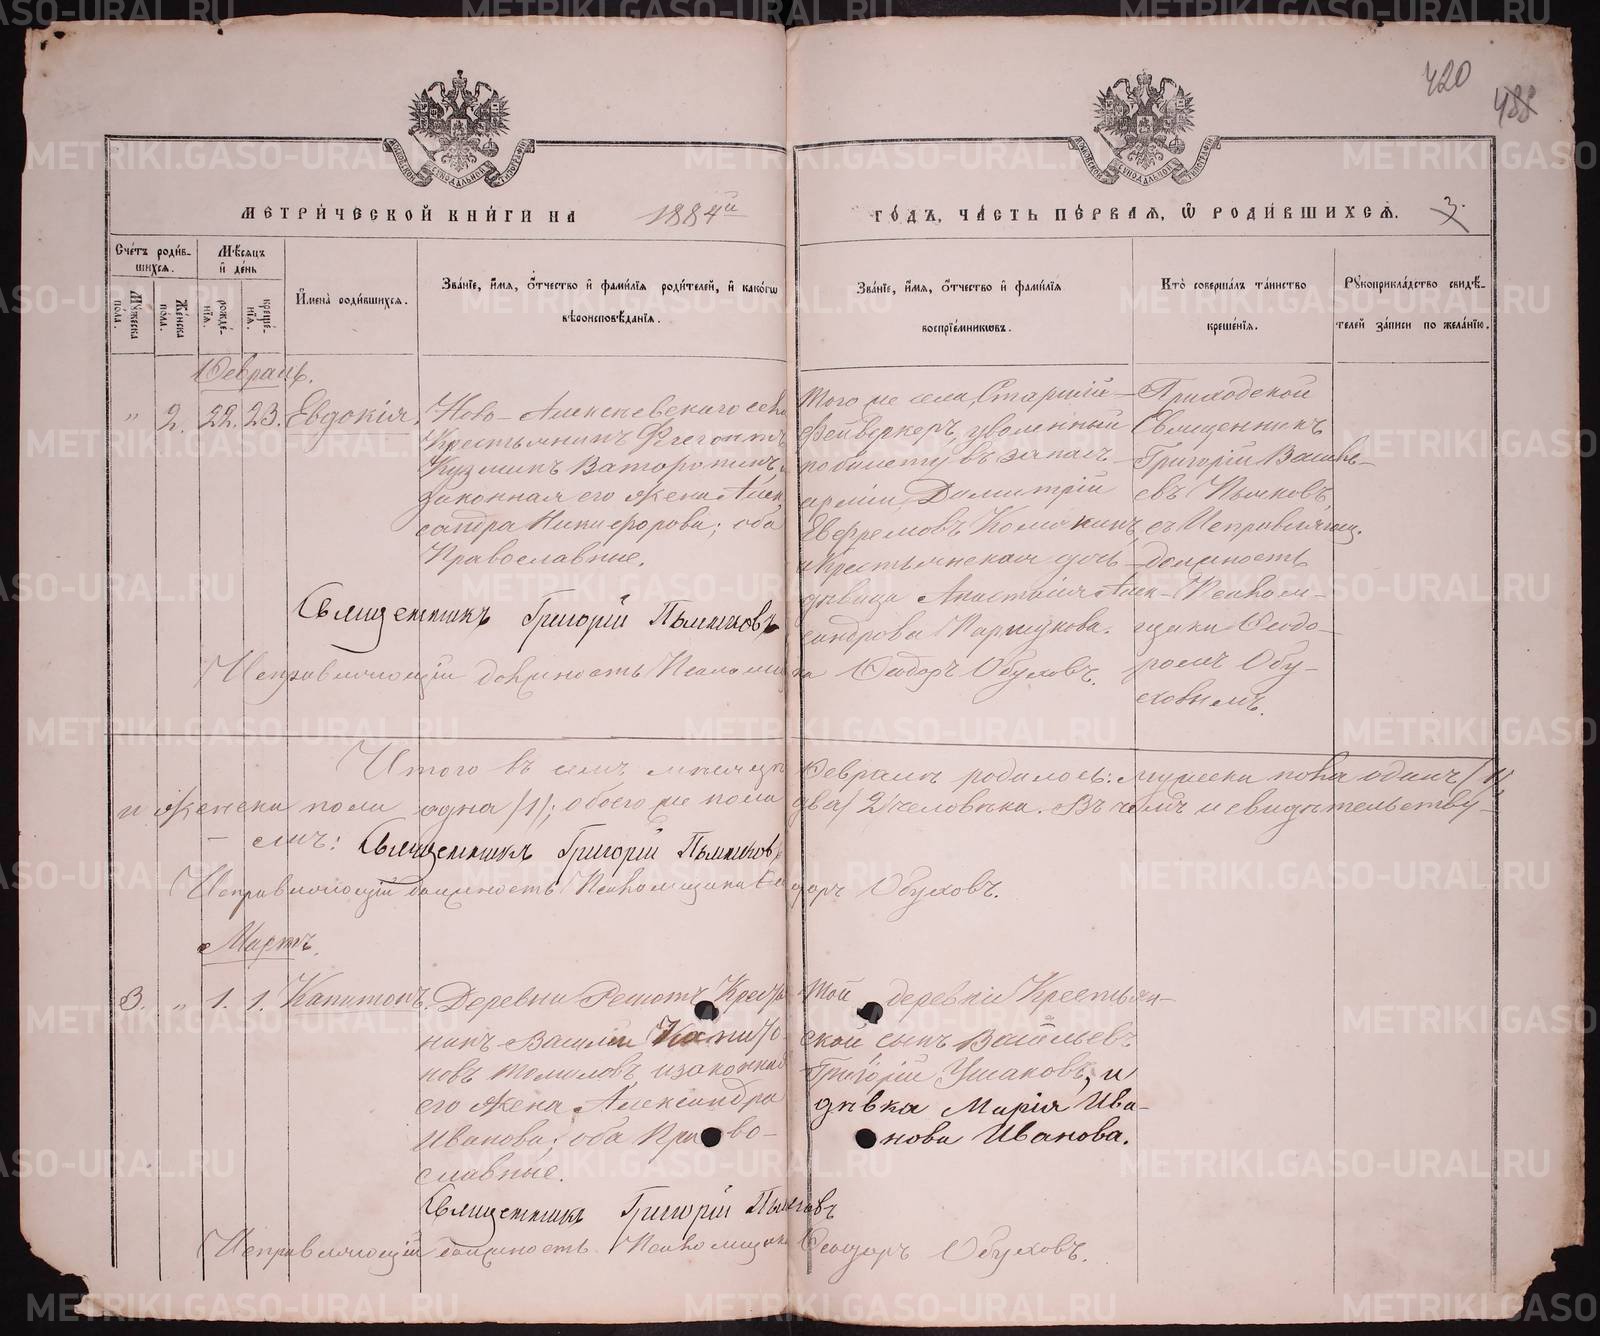 420
488
МОСКОВСКОЙ СѴНОДАЛЬНОЙ ТИПОГРАФІИ
МОСКОВСКОЙ СѴНОДАЛЬНОЙ ТИПОГРАФІИ
МЕТРИ́ЧЕСКОЙ КНИ́ГИ НА 1884й ГО́ДЪ, ЧА́СТЬ ПЕ́РВАЯ, Ѡ РОДИ́ВШИХСЯ. 3.
Сче́тъ роди́в-
шихся.
Мѣ́сяцъ
и҆ де́нь
Му́жеска
пола.
Же́нска
пола.
рожде́-
нїя.
креще́-
нїя.
И҆мена̀ роди́вшихся.
Зва́нїе, и҆́мя, ѻ҆́тчество и҆ фами́лїя роди́телей, и҆ како́гѡ
вѣроисповѣ́данїя.
Зва́нїе, и҆́мя, ѻ҆́тчество и҆ фами́лїя
воспрїе́мникѡвъ.
Кто̀ соверша́лъ та́инство
креще́нїя.
Рꙋкоприкла́дство свидѣ́-
телей за́писи по жела́нїю.
Февраль.
" 2. 22. 23. Евдокія.
Ново-Алексеевскаго села
Крестьянинъ Флегонтъ
Кузминъ Ваторопинъ, и
законная его жена Алек
сандра Никифорова; оба
Православные.
Того же села, Старшій
Фейверкеръ, уволенный
по билету въ запасъ
арміи, Димитрій
Ефремовъ Комакинъ,
и Крестьянская дочь
дѣвица Анастасія Алек-
сандрова Паршукова.
Приходской
Священникъ
Григорій Василь-
евъ Пьянковъ
съ Исправляющ.
должность
Псалом-
щика Ѳеодо-
ромъ Обу-
ховымъ.
Священникъ Григорій Пьянковъ
Исправляющій должность Псаломщика Ѳеодоръ Обуховъ.
Итого въ семъ мѣсяцѣ Февралѣ родилось: мужеска пола одинъ /1/
и женска пола одна /1/; обоего же пола два /2/ человѣка. Въ чемъ и свидѣтельству-
емъ: Священникъ Григорій Пьянковъ,
Исправляющій должность Псаломщика Ѳеодоръ Обуховъ.
Мартъ.
3. " 1. 1. Капитонъ.
Деревни Решотъ Крестья
нинъ Василій Капито
новъ Томиловъ, и законная
его жена Александра
Иванова; оба Право-
славные.
Той деревни Крестьян-
ской сынъ Васильевъ
Григорій Ушаковъ, и
дѣвка Марія Ива-
нова Иванова.
Священникъ Григорій Пьянковъ
Исправляющій должность Псаломщика Ѳеодоръ Обуховъ.
METRIKI.GASO-URAL.RU